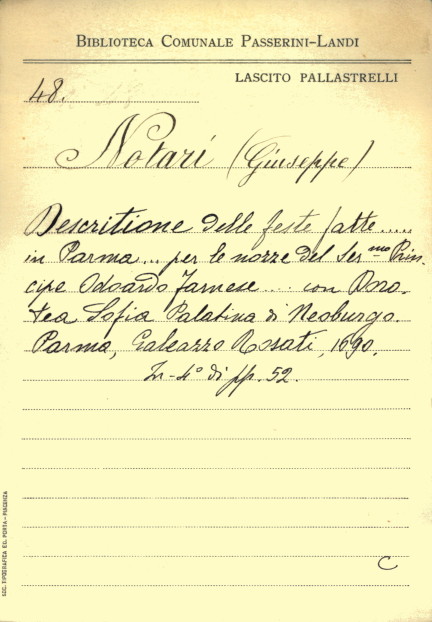 BIBLIOTECA COMUNALE PASSERINI-LANDI
LASCITO PALLASTRELLI
48.
Notari (Giuseppe)
Descritione delle feste fatte .....
in Parma ... per le nozze del Ser.mo Prin-
cipe Odoardo Farnese ... con Doro-
tea Sofia Palatina di Neoburgo.
Parma, Galeazzo Rosati, 1690.
In-4° di pp. 52.
C
SOC. TIPOGRAFICA ED. PORTA - PIACENZA